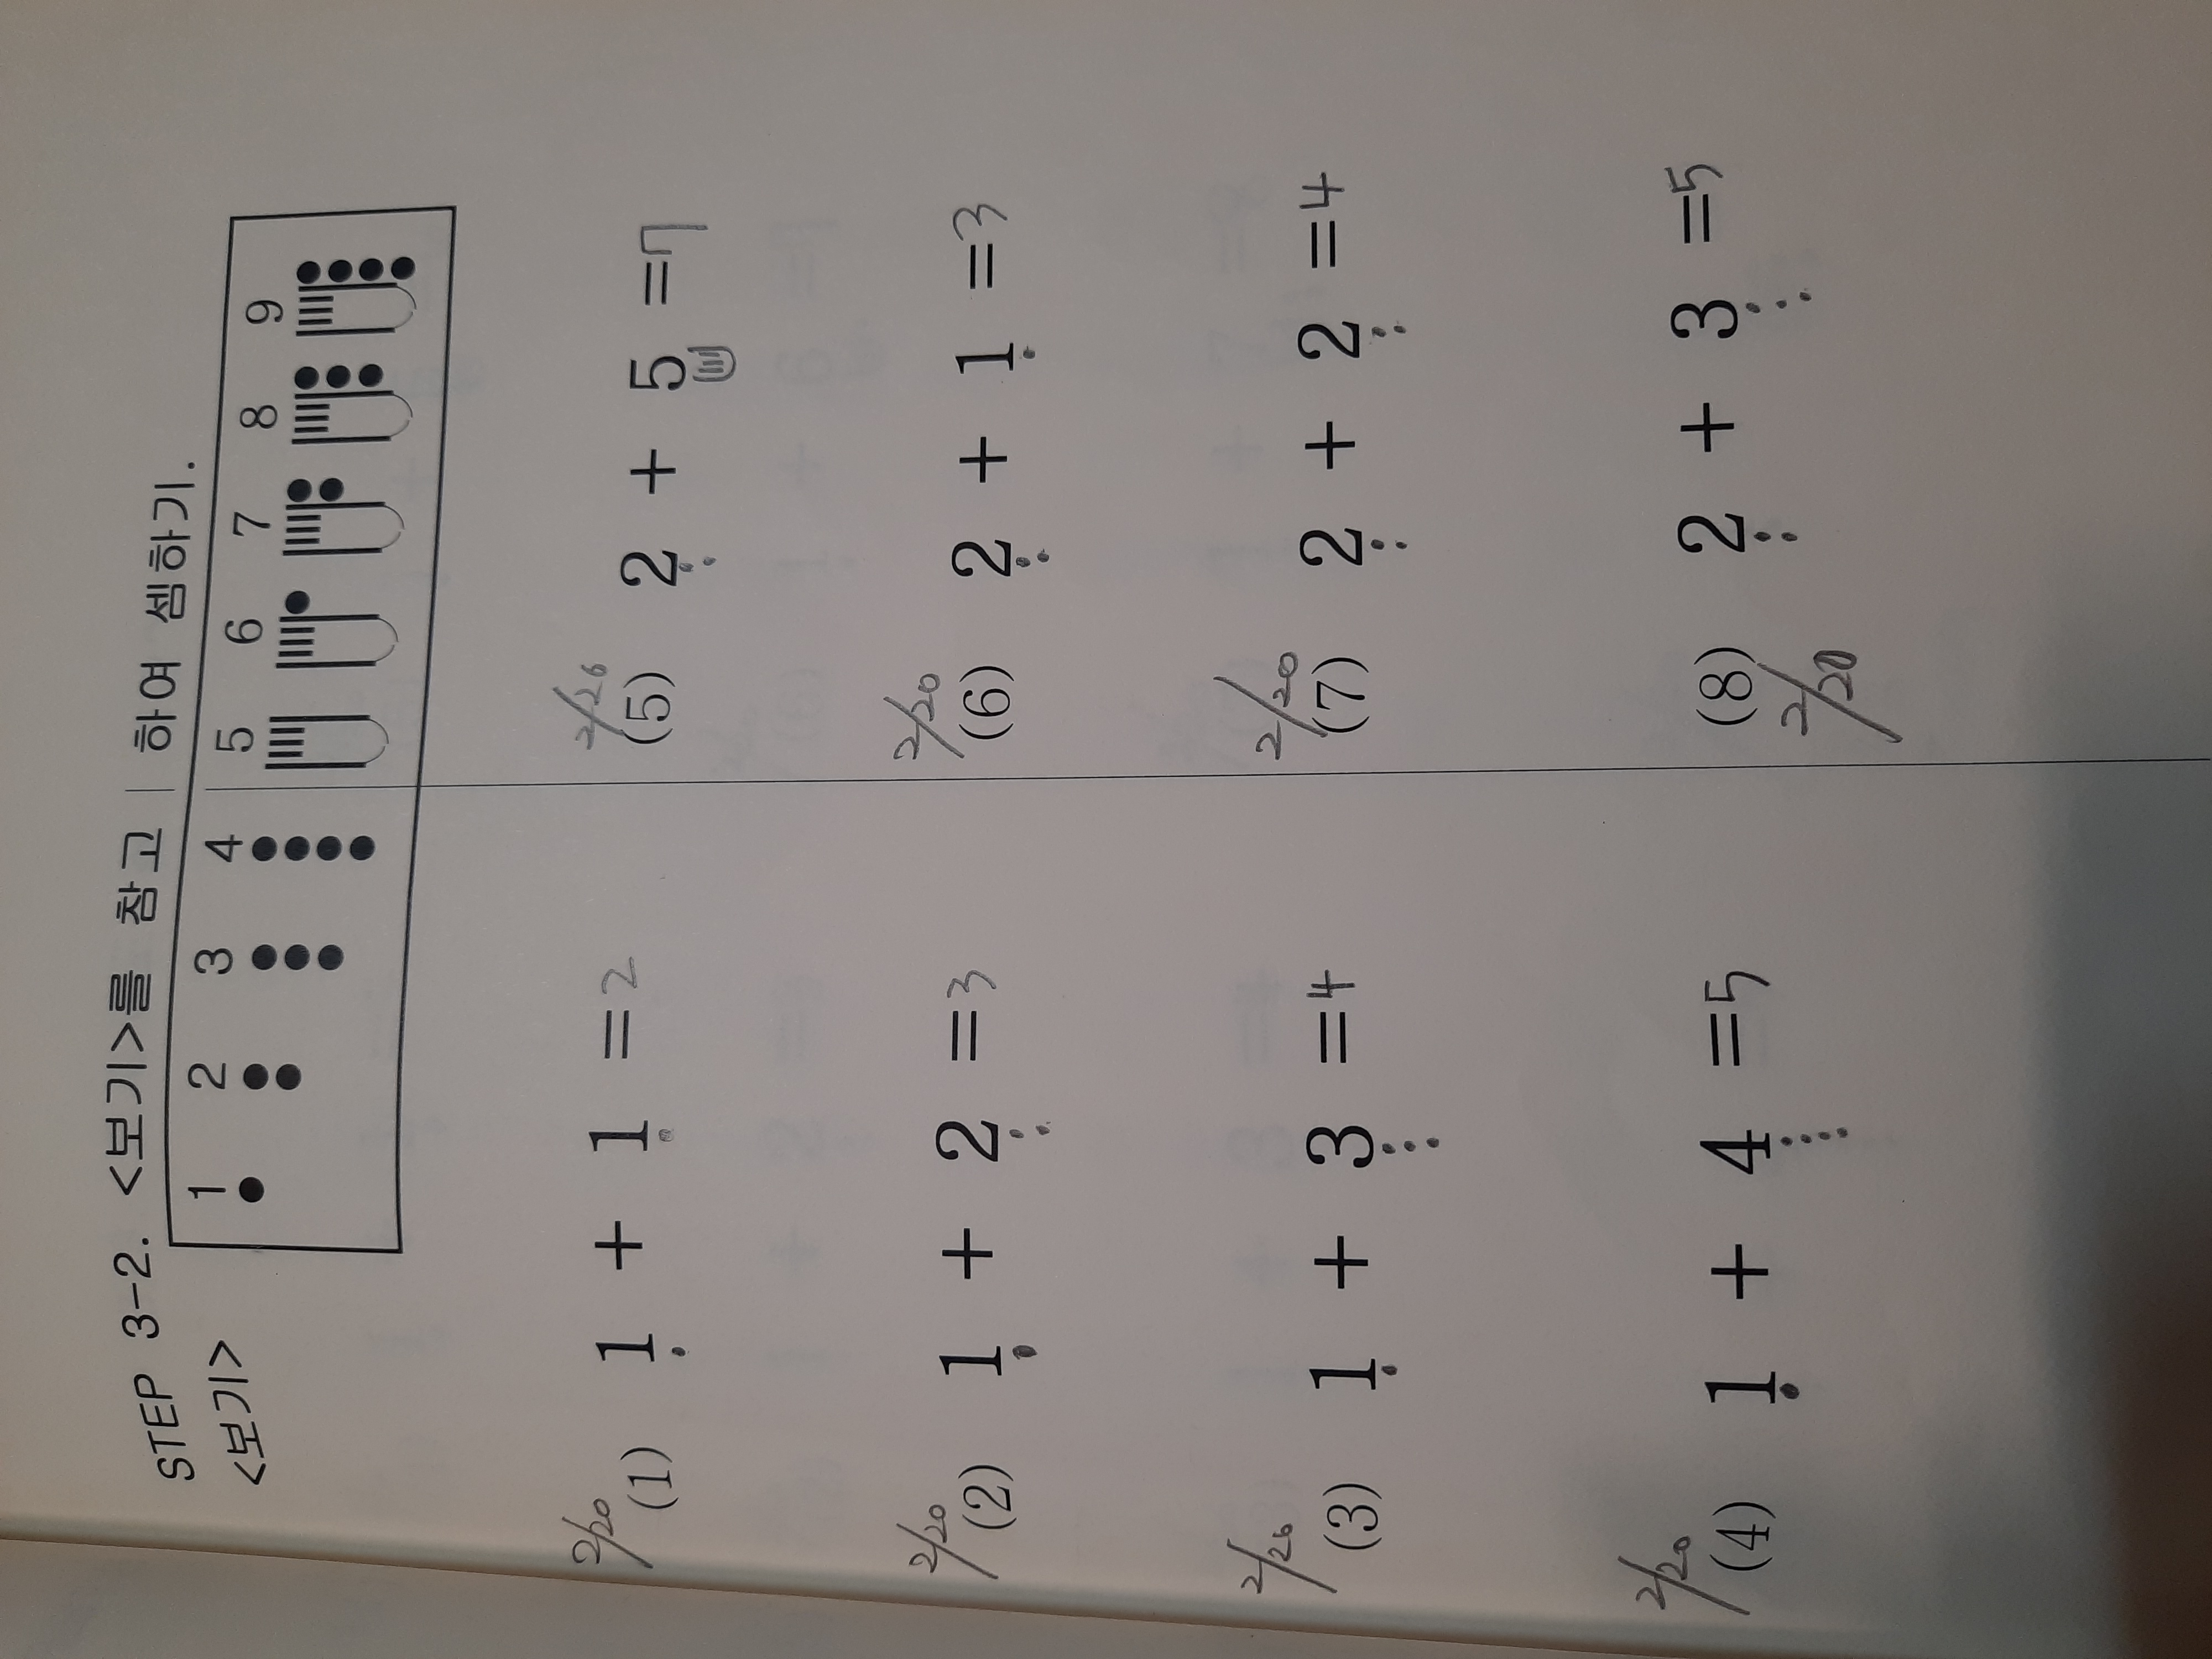 STEP 3-2. <보기>를 참고 | 하여 셈하기.
<보기>
1 2 3 4 5 6 7 8 9
2/20
(1) 1 + 1 = 2
2/26
(5) 2 + 5 = 7
2/20
(2) 1 + 2 = 3
2/20
(6) 2 + 1 = 3
2/20
(3) 1 + 3 = 4
2/20
(7) 2 + 2 = 4
2/20
(4) 1 + 4 = 5
(8) 2 + 3 = 5
2/20